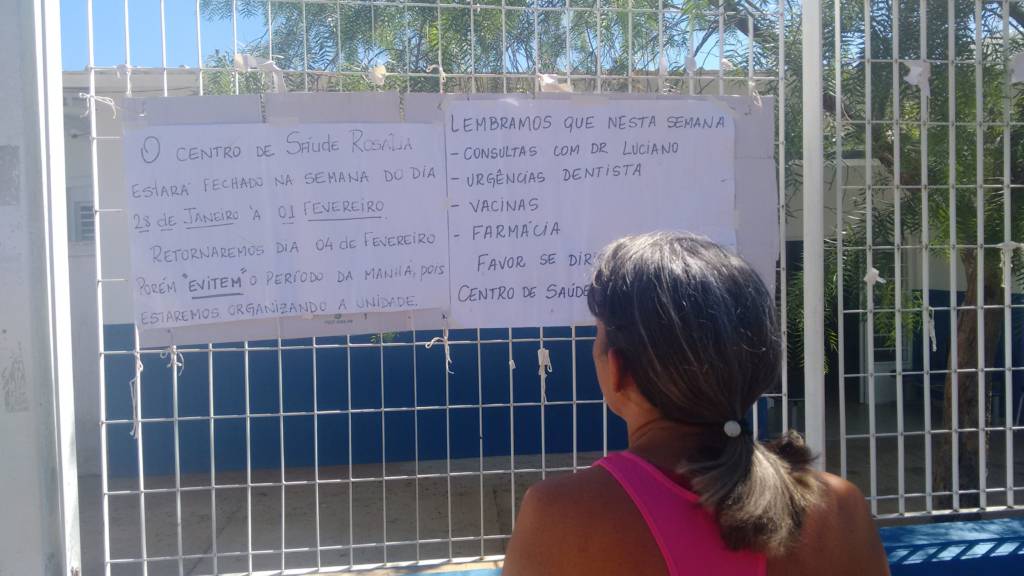 O CENTRO DE SAÚDE ROSÁLIA
ESTARÁ FECHADO NA SEMANA DO DIA
28 de JANEIRO À 01 FEVEREIRO.
RETORNAREMOS DIA 04 de FEVEREIRO
PORÉM "EVITEM" O PERÍODO DA MANHÃ, POIS
ESTAREMOS ORGANIZANDO A UNIDADE.
LEMBRAMOS QUE NESTA SEMANA
- CONSULTAS COM DR LUCIANO
- URGÊNCIAS DENTISTA
- VACINAS
- FARMÁCIA
FAVOR SE
CENTRO DE SAÚDE